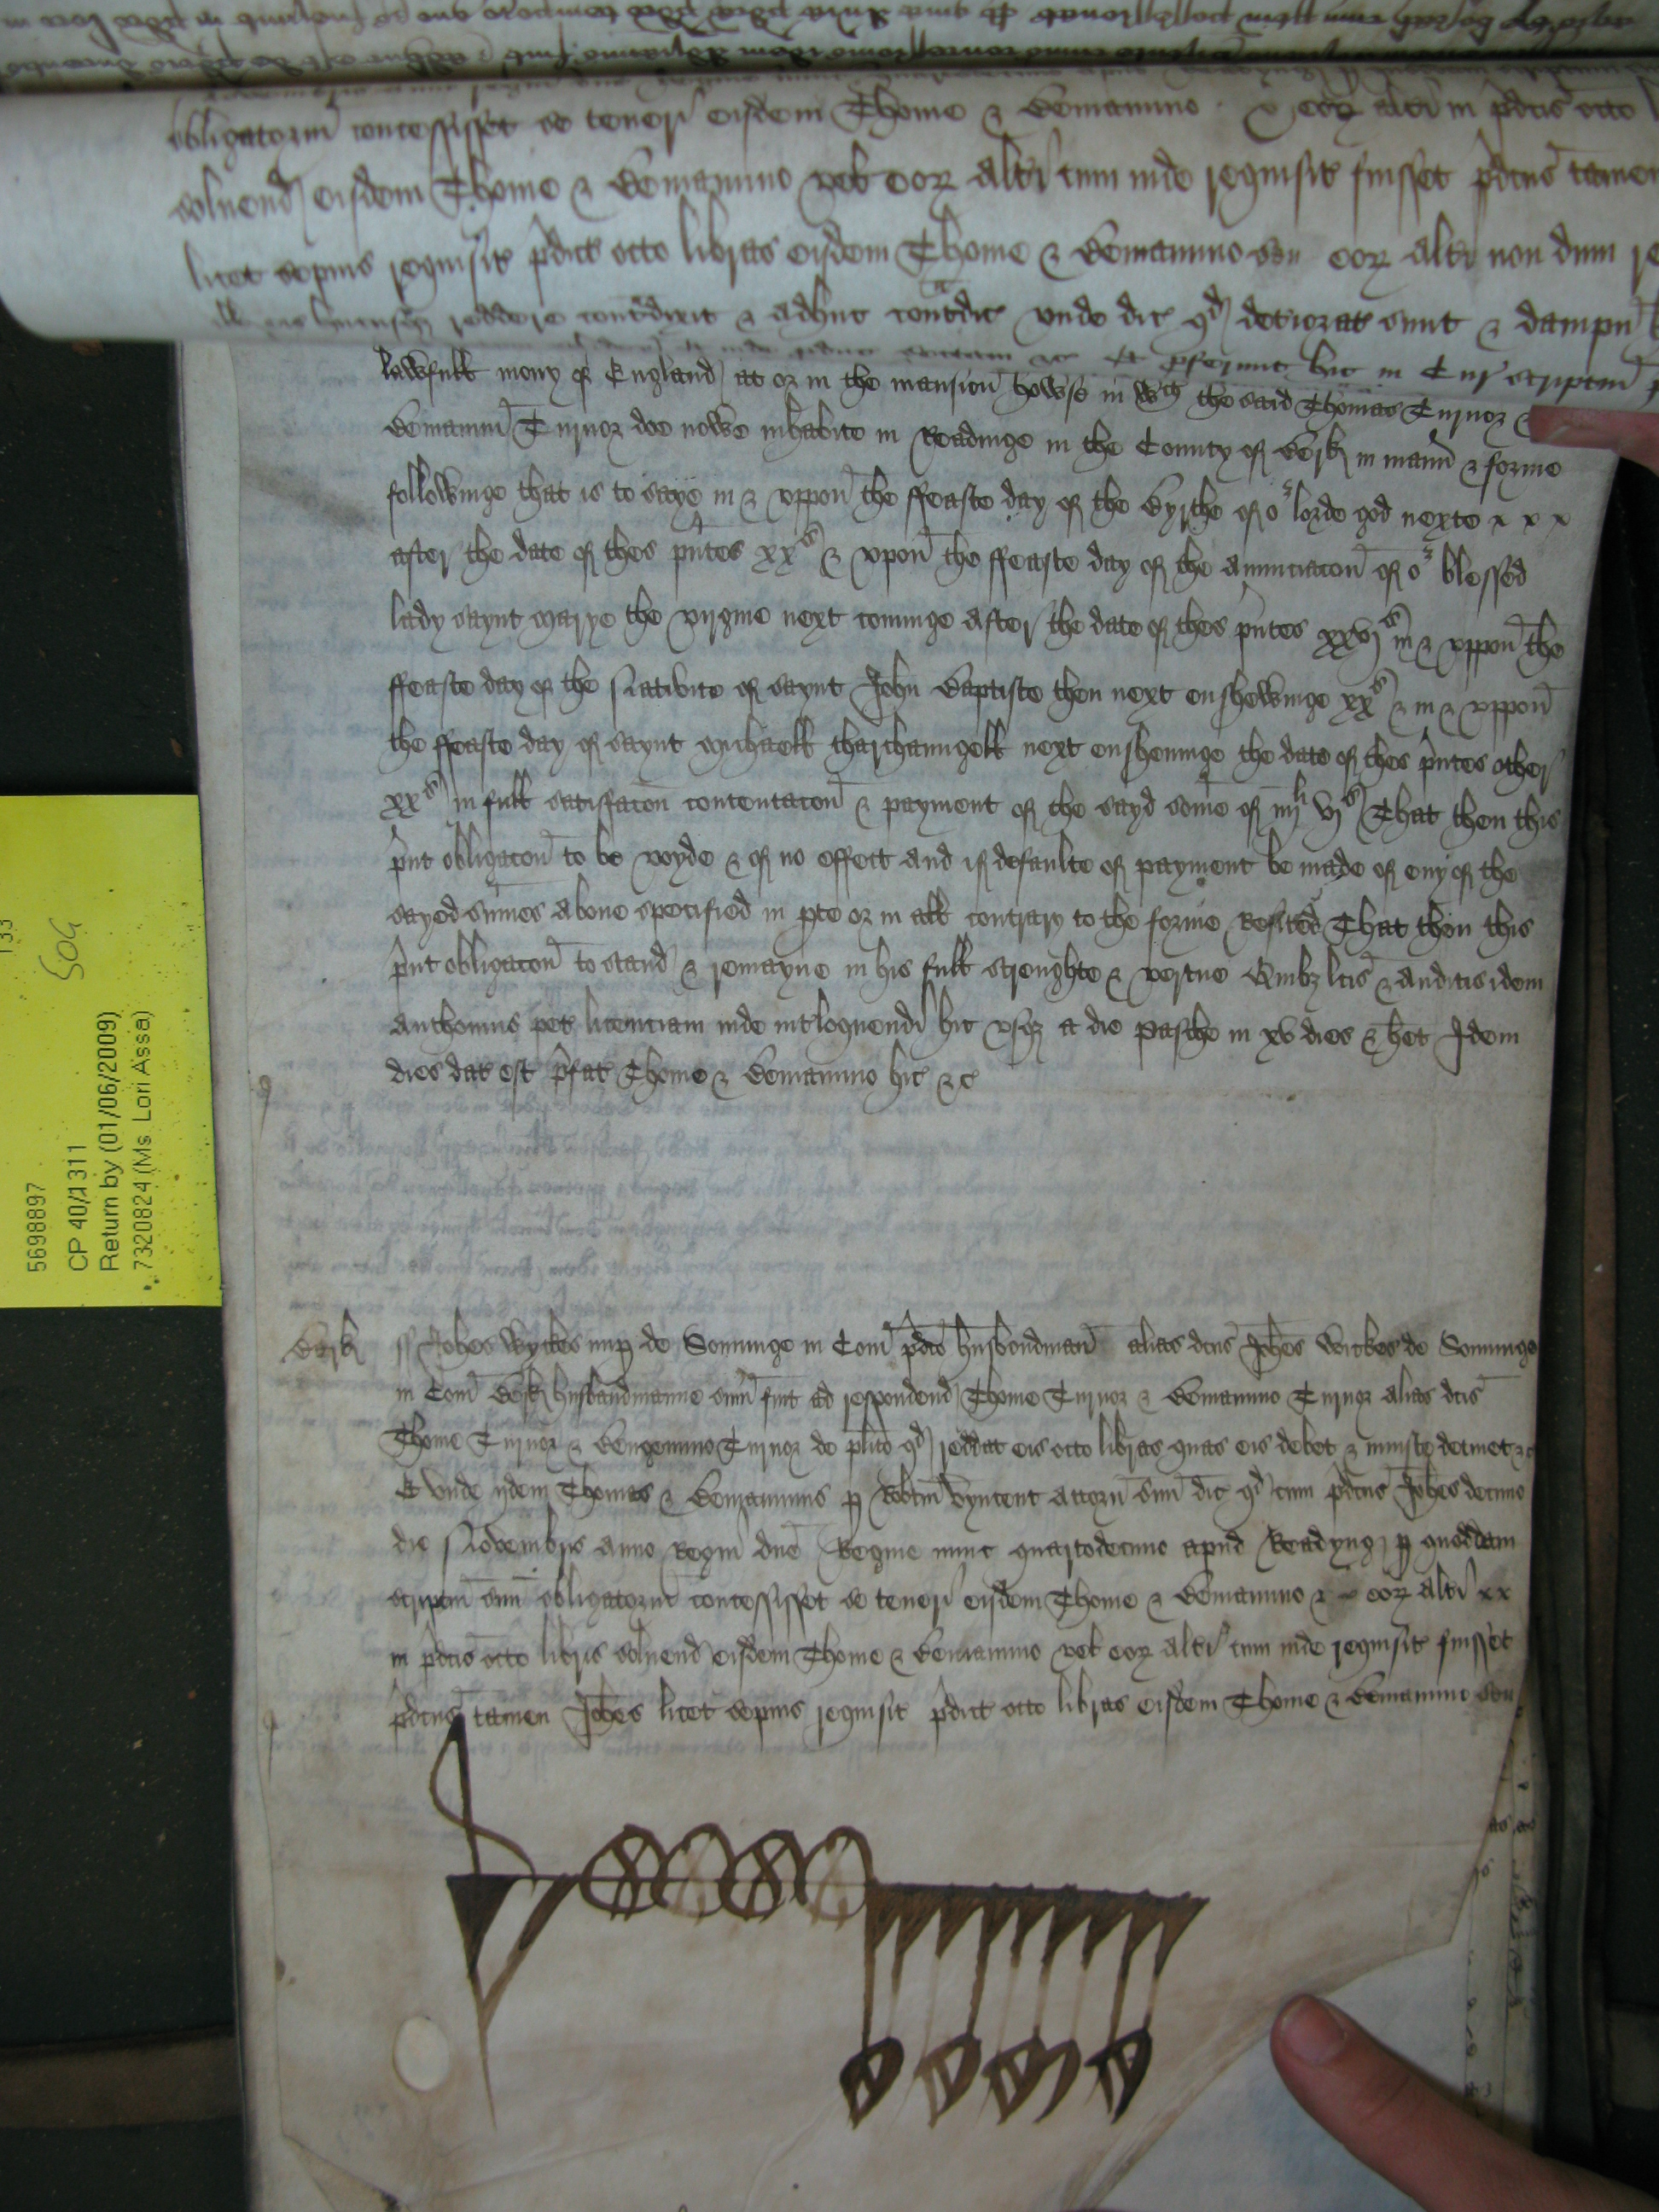 obligatorm concessisset se teneri eisdem Thome & Beniamino & eor alti in pdcis octo
solvend eisdem Thome & Beniamino vel eor alti cum inde requisit fuisset pdcus tamen
licet sepius requisit pdict octo libras eisdem Thome & Beniamino seu eor alti non dum
reddere contadixit & adhuc contadic unde dic qd deteriorat sunt & dampn
Et pferunt hic in Cur scriptum
lawfull mony of England at or in the mansion howse in wch the said Thomas Turnor &
Beniamin Turnor doe nowe inhabite in Readinge in the County of Berk in mann & forme
followinge that is to saye in & uppon the ffeaste day of the Byrthe of or lorde god nexte x x x
after the date of thes pntes xxs & upon the ffeaste day of the Annunciacon of or blessed
lady saynt Marye the virgine next cominge after the date of thes pntes xxvjs in & uppon the
ffeaste day of the Nativite of saynt John Baptiste then next enshewinge xxs & in & uppon
the ffeaste day of saynt Michaell tharchaungell next ensheuinge the date of thes pntes other
xxs in full satisfacon contentacon & payment of the sayd some of iiijli vjs That then this
pnt obligacon to be voyde & of no effect and if defaulte of payment be made of eny of the
sayed sumes above specified in pte or in all contrary to the forme Resited That then this
pnt obligacon to stand & remayne in his full strenghte & vertue Quibz lcis & auditis idem
Anthonius pet licenciam inde intloquendi hic usqz a die Pasche in xv dies & het Idem
dies dat est pfat Thome & Beniamino hic &c
Berk ss Johes Wyckes nup de Sonninge in Com pdco husbondman alias dcus Johes Wickes de Sonninge
in Com Berk husbandmanne sum fuit ad respondend Thome Turnor & Beniamino Turnor alias dcis
Thome Turnor & Bengemino Turnor de plito qd reddat eis octo libras quas eis debet & iniuste detinet &c
Et unde ijdem Thomas & Beniaminus p Robtm Vyncent attorn suu dic qd cum pdcus Johes decimo
die Novembris anno Regni dne Regine nunc quartodecimo apud Readyng p quoddam
scriptm suu obligatoriu concessisset se teneri eisdem Thome & Beniamino & eor alti xx
in pdcis octo libris solvend eisdem Thome & Beniamino vel eor alti cum inde requisit fuisset
pdcus tamen Johes licet sepius requisit pdict octo libras eisdem Thome & Beniamino seu
133
504
5698897
CP 40/1311
Return by (01/06/2009)
7320824 (Ms Lori Assa)